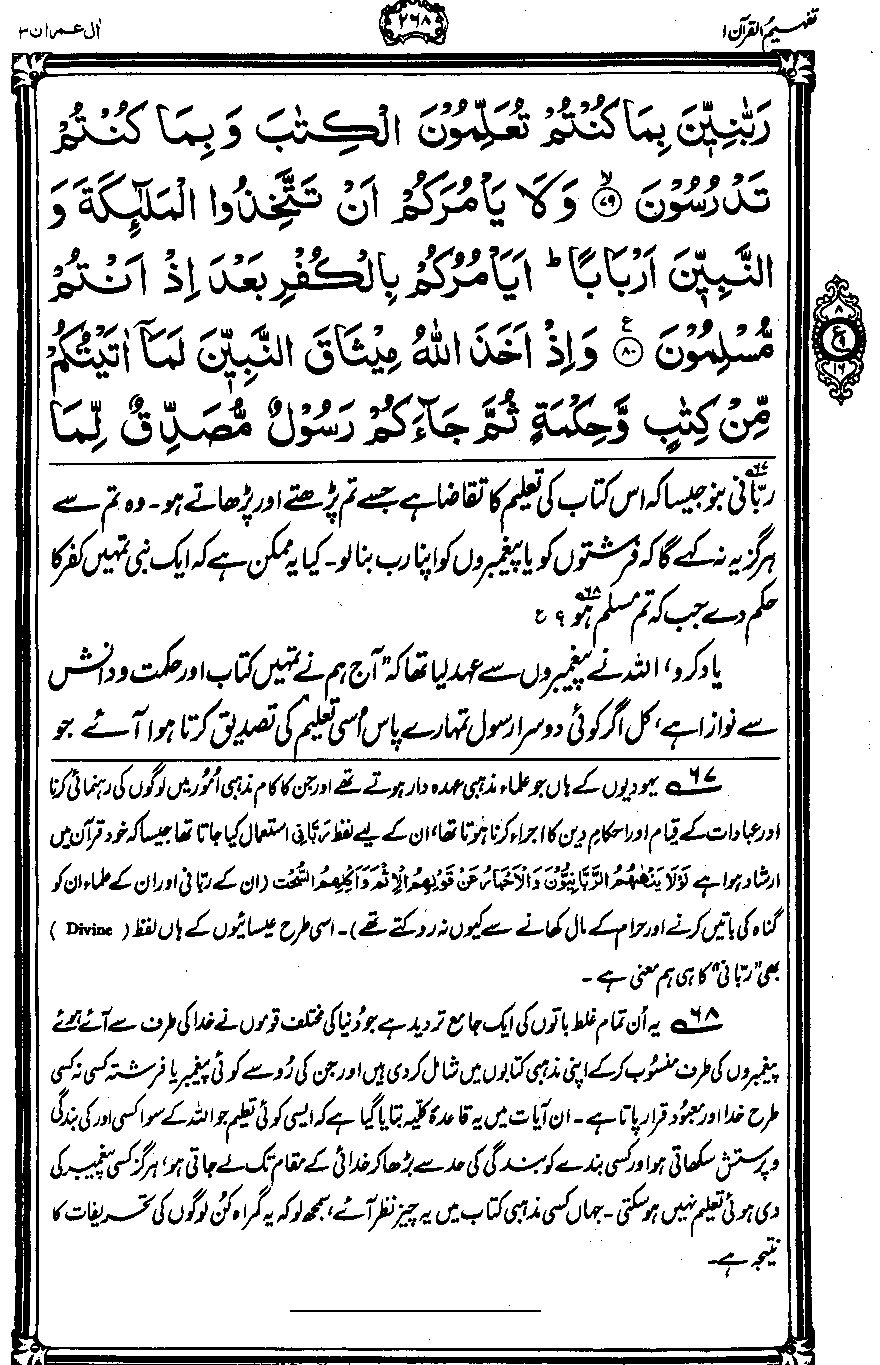 تفہیم القرآن ۱
۲۶۸
اٰل عمران ۳
رَبّٰنِيّٖنَ بِمَا كُنْتُمْ تُعَلِّمُوْنَ الْكِتٰبَ وَ بِمَا كُنْتُمْ
تَدْرُسُوْنَ ۙ﴿۷۹﴾ وَ لَا يَاْمُرَكُمْ اَنْ تَتَّخِذُوا الْمَلٰٓئِكَةَ وَ
النَّبِيّٖنَ اَرْبَابًا ؕ اَيَاْمُرُكُمْ بِالْكُفْرِ بَعْدَ اِذْ اَنْتُمْ
مُّسْلِمُوْنَ ﴿۸۰﴾ ع وَ اِذْ اَخَذَ اللّٰهُ مِيْثَاقَ النَّبِيّٖنَ لَمَاۤ اٰتَيْتُكُمْ
۸
ع
۹
۱۶
مِّنْ كِتٰبٍ وَّ حِكْمَةٍ ثُمَّ جَآءَكُمْ رَسُوْلٌ مُّصَدِّقٌ لِّمَا
ربّانی۶۷ بنو جیسا کہ اس کتاب کی تعلیم کا تقاضا ہے جسے تم پڑھتے اور پڑھاتے ہو۔ وہ تم سے
ہرگز یہ نہ کہے گا کہ فرشتوں کو یا پیغمبروں کو اپنا رب بنالو۔ کیا یہ ممکن ہے کہ ایک نبی تمہیں کفر کا
حکم دے جب کہ تم مسلم ہو۶۸ ؟ ع
یاد کرو، اللہ نے پیغمبروں سے عہد لیا تھا کہ "آج ہم نے تمہیں کتاب اور حکمت و دانش
سے نوازا ہے، کل اگر کوئی دوسرا رسول تمہارے پاس اُسی تعلیم کی تصدیق کرتا ہوا آئے جو
۶۷ یہودیوں کے ہاں جو علماء مذہبی عہدہ دار ہوتے تھے اور جن کا کام مذہبی اُمُور میں لوگوں کی رہنمائی کرنا
اور عبادات کے قیام اور احکامِ دین کا اجراء کرنا ہوتا تھا، ان کے لیے لفظ رَبّانی استعمال کیا جاتا تھا جیسا کہ خود قرآن میں
ارشاد ہوا ہے لَوْلَا يَنْهٰهُمُ الرَّبَّانِيُّوْنَ وَالْاَحْبَارُ عَنْ قَوْلِهِمُ الْاِثْمَ وَاَكْلِهِمُ السُّحْتَ (ان کے ربّانی اور ان کے علماء ان کو
گناہ کی باتیں کرنے اور حرام کے مال کھانے سے کیوں نہ روکتے تھے)۔ اسی طرح عیسائیوں کے ہاں لفظ ( Divine )
بھی "ربّانی" کا ہی ہم معنی ہے۔
۶۸ یہ اُن تمام غلط باتوں کی ایک جامع تردید ہے جو دُنیا کی مختلف قوموں نے خدا کی طرف سے آئے ہوئے
پیغمبروں کی طرف منسُوب کرکے اپنی مذہبی کتابوں میں شامل کردی ہیں اور جن کی رُو سے کوئی پیغمبر یا فرشتہ کسی نہ کسی
طرح خدا اور معبُود قرار پاتا ہے۔ ان آیات میں یہ قاعدۂ کلیہ بتایا گیا ہے کہ ایسی کوئی تعلیم جو اللہ کے سوا کسی اور کی بندگی
و پرستش سکھاتی ہو اور کسی بندے کو بندگی کی حد سے بڑھا کر خدائی کے مقام تک لے جاتی ہو، ہرگز کسی پیغمبر کی
دی ہوئی تعلیم نہیں ہوسکتی۔ جہاں کسی مذہبی کتاب میں یہ چیز نظر آئے، سمجھ لو کہ یہ گمراہ کُن لوگوں کی تحریفات کا
نتیجہ ہے۔